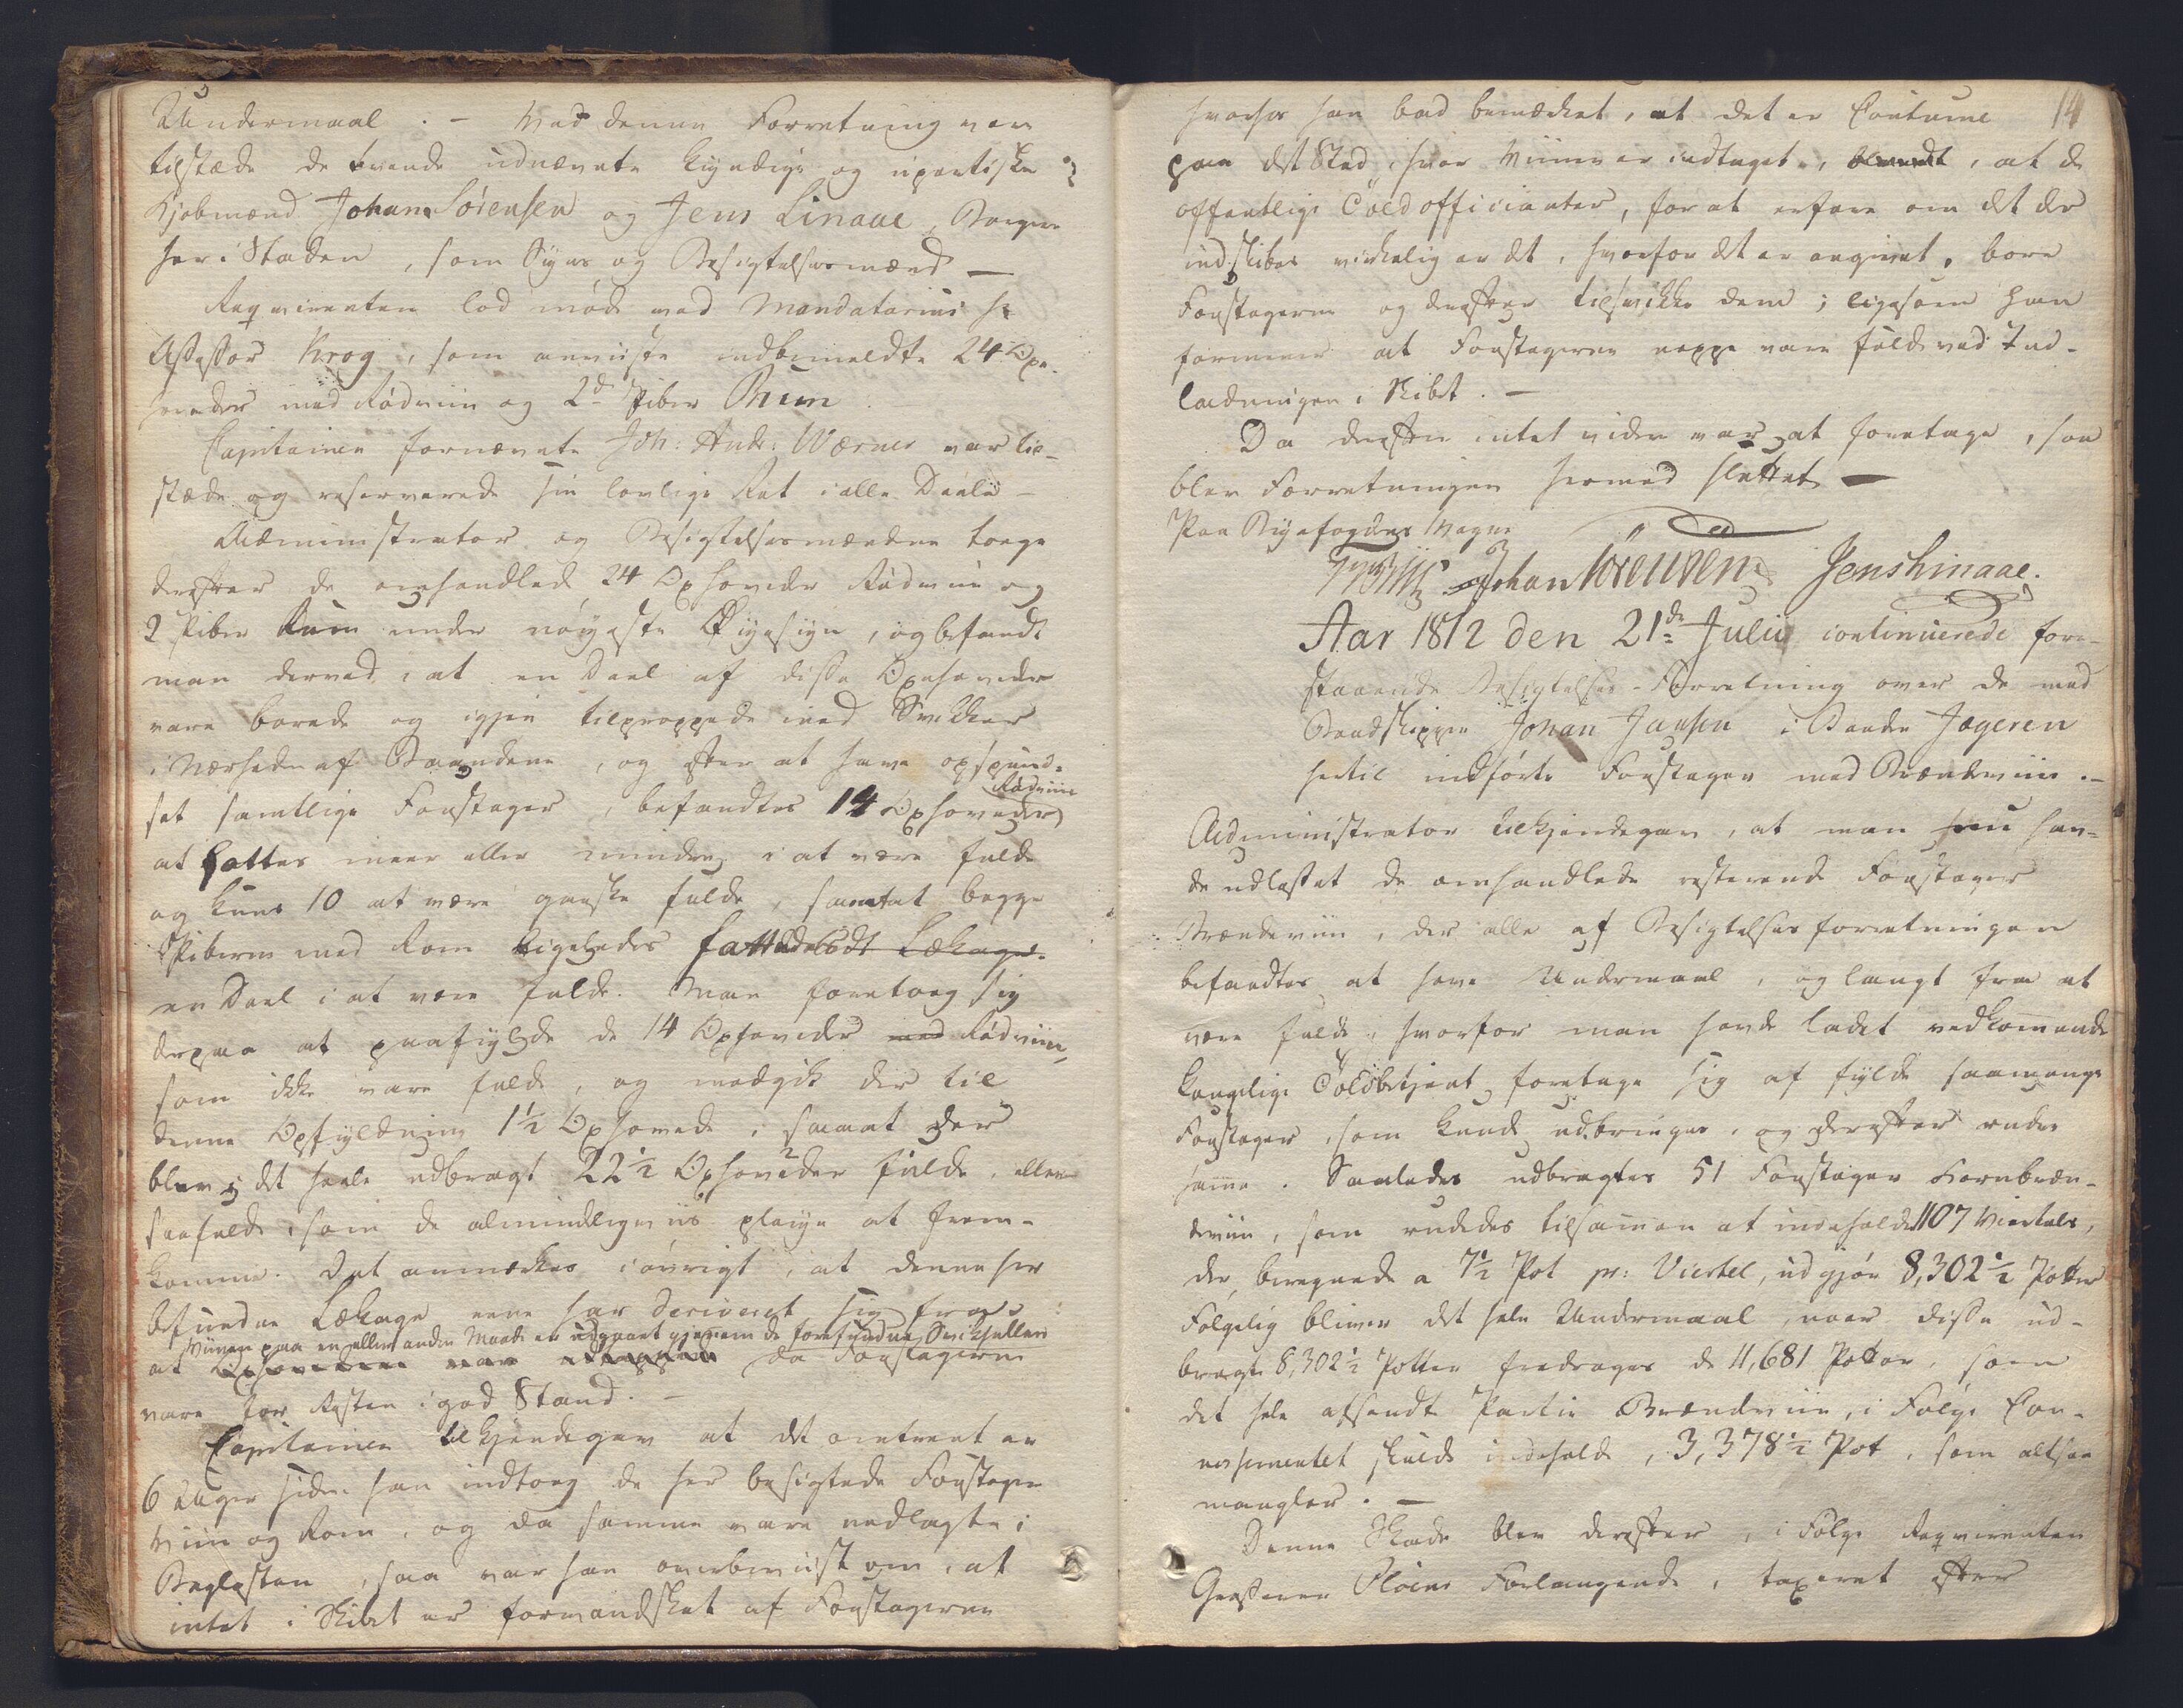 Undermaal. – Ved denne Forretning vare
tilstæde de tvende udnævnte kyndige og upartiske
Kjøbmænd Johan Sörensen og Jens Linaae, Borgere
her i Staden, som Syns og Besigtelsesmænd –
Reqvirenten lod møde ved Mandatarius Hr
Assessor Krog, som anviiste indbemeldte 24 Oxe-
hoveder med Rødviin og 2de Piber Rum.
Capitainen fornævnte Joh: Andr: Wærner var til-
stæde og reserverede sin lovlige Ret i alle Deele –
Administrator og Besigtelsesmændene toege
derefter de omhandlede 24 Oxhoveder Rødviin og
2 Piber Rum under nøyeste Øyesyn, og befandt
man derved, at en Deel af disse Oxehoveder
vare borede og igjen tilproppede med Svikker
i Nærheden af Baandene, og efter at have opspund-
set samtlige Foustager, befandtes 14 Oxhoveder Rødviin
at fattes meer eller mindre i at være fulde
og kuns 10 at være ganske fulde, samt at begge
Piberne med Rom ligeledes fattedes Lækage
en Deel i at være fulde. Man foretoeg sig
derpaa at paafylde de 14 Oxhoveder med Rødviin,
som ikke vare fulde, og medgik der til
denne Opfyldning 1½ Oxhoved, saa at der
blev i det heele udbragt 22½ Oxhoveder fulde, eller
saa fulde, som de almindeligviis pleiye at frem-
komme. Det anmærkes iøvrigt, at denne her
befundne Lækage ene har deriveret sig fra
Viinen paa en eller anden Maade er udgaaet gjennem de forefundne Svikhuller
at Oxhovederne vare da Foustagerne
vare for Resten i god Stand. –
Capitainen tilkjendegav at det omtrent er
6 Uger siden han indtoeg de her besigtede Foustager
Viin og Rom, og da samme vare nedlagte i
Baglasten, saa var han overbeviist om, at
intet i Skibet er formandsket af Foustagerne
14
hvorhos han bad bemærket, at det er Coutume
paa det Sted, hvor Vinen er indtaget, at de
offentlige Toldofficianter, for at erfare om det der
indskibes virkelig er det, hvorfor det er angivet, bore
Foustagerne og derefter tilsvikke dem; ligesom han
formener at Foustagerne neppe vare fulde ved Ind-
ladningen i Skibet. –
Da derefter intet videre var at foretage, saa
blev Forretningen hermed sluttet –
Paa Byefogdens Vegne
Johan Sörensen Jens Linaae.
Aar 1812 den 21de Julii continuerede fore-
staaende Besigtelses-Forretning over de med
Baadskipper Johan Jansen i Baaden Jægeren
hertil indførte Foustager med Brændeviin. –
Administrator tilkjendegav, at man nu hav-
de udlosset de omhandlede resterende Foustager
Brændeviin, der alle af Besigtelsesforretningen
befandtes at have Undermaal, og langt fra at
være fulde, hvorfor man havde ladet vedkommende
kongelige Toldbetjent foretage sig at fylde saamange
Foustager, som kunde udbringes, og derefter rudes
samme. Saaledes udbragtes 51 Foustager Kornbræn-
deviin, som rudedes tilsammen at indeholde 1107 Viertels,
der, beregnede a 7½ Pot pr: Viertel, udgjør 8,302½ Potter
Følgelig bliver det hele Undermaal, naar disse ud-
bragte 8,302½ Potter fradrages de 11,681 Potter, som
det hele afsendte Partie Brændeviin, i Følge Con-
nessementet skulde indeholde, 3,378½ Pot, som altsaa
mangler. –
Denne Skade blev derefter, i Følge Reqvirenten
Grosserer Ploens Forlangende, taxeret efter